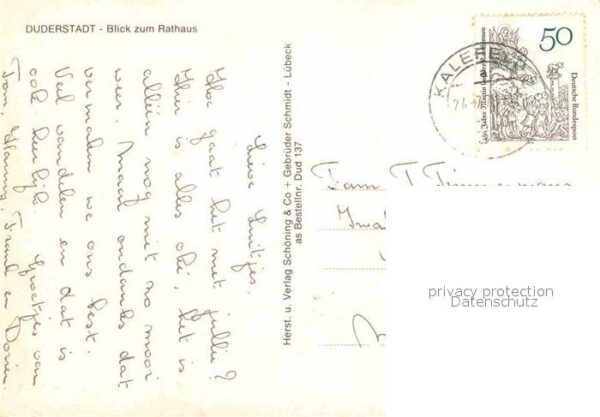 DUDERSTADT - Blick zum Rathaus
Lieve Luitjes.
Hoe gaat het met jullie?
Hier is alles oké, het is
alleen nog niet zo mooi
weer. Maar ondanks dat
vermaken we ons best.
Veel wandelen en dat is
ook heerlijk.
Groetjes van
Tom, Hanny, Frank en Dorien.
Herst. u. Verlag Schöning & Co + Gebrüder Schmidt - Lübeck
as Bestellnr. Dud 137
50
Deutsche Bundespost
KALEFELD
Fam. T. Timmermans
privacy protection
Datenschutz